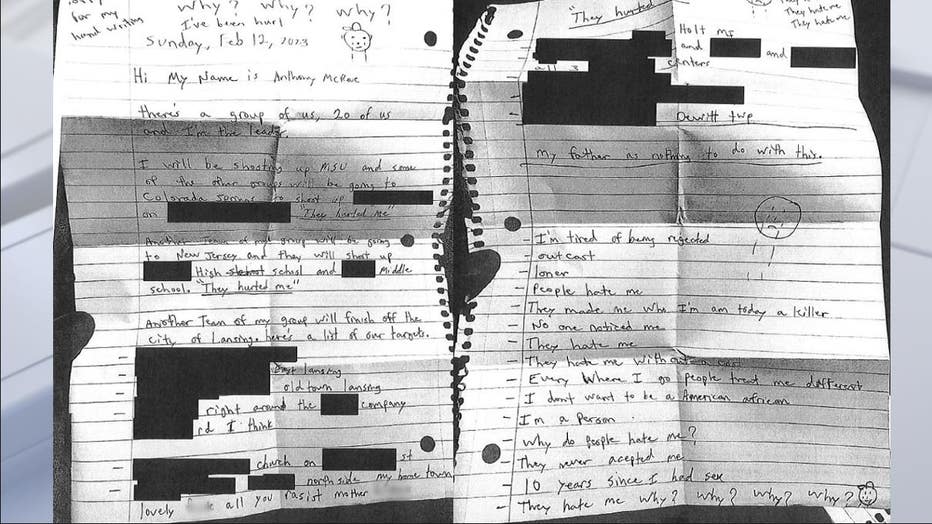 for my
hand writing
why? why? why?
I've been hurt
Sunday, Feb 12, 2023
Hi My Name is Anthony McRae
there's a group of us, 20 of us
and I'm the leader
I will be shooting up MSU and some
of the other groups will be going to
Colorada springs to shoot up
on "They hurted me"
Another Team of my group will be going
to New Jersey and they will shoot up
High school and Middle
school. "They hurted me"
Another Team of my group will finish off the
city of Lansing. here's a list of our targets.
- East lansing
- old town lansing
- right around the company
- rd I think
- church on st
- northside my home town
lovely all you rasist mother
"They hurted
Holt MI
and and
all 3 centers
Dewitt twp
They hate me
They hate me
They hate me
my father as nothing to do with this.
- I'm tired of being rejected
- outcast
- loner
- People hate me
- They made me who I'm am today a killer
- No one noticed me
- They hate me
- They hate me without a
- Every where I go people treat me different
- I dont want to be a American african
- I'm a person.
- Why do people hate me?
- They never acepted me
- 10 years since I had sex
- They hate me why? why? why? why?